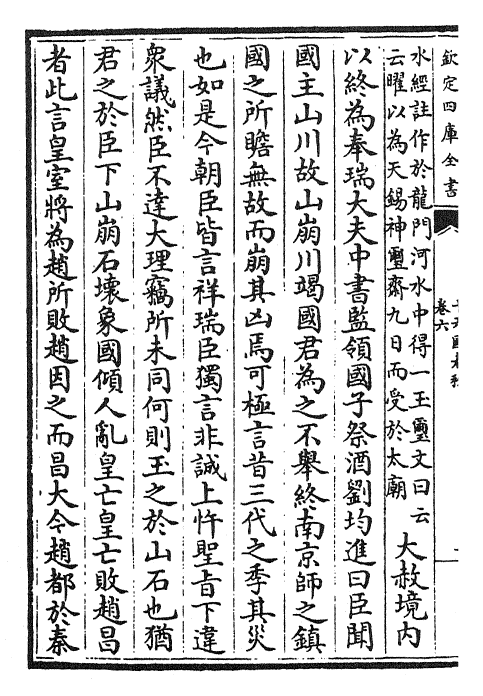 欽定四庫全書
卷六
水經註作於龍門河水中得一玉璽文曰云
云曜以為天錫神璽齋九日而受於太廟
大赦境内
以終為奉瑞大夫中書監領國子祭酒劉均進曰臣聞
國主山川故山崩川竭國君為之不舉終南京師之鎮
國之所瞻無故而崩其凶焉可極言昔三代之季其災
也如是今朝臣皆言祥瑞臣獨言非誠上忤聖㫖下違
衆議然臣不達大理竊所未同何則玉之於山石也猶
君之於臣下山崩石壊象國傾人亂皇亡皇亡敗趙昌
者此言皇室將為趙所敗趙因之而昌大今趙都於秦